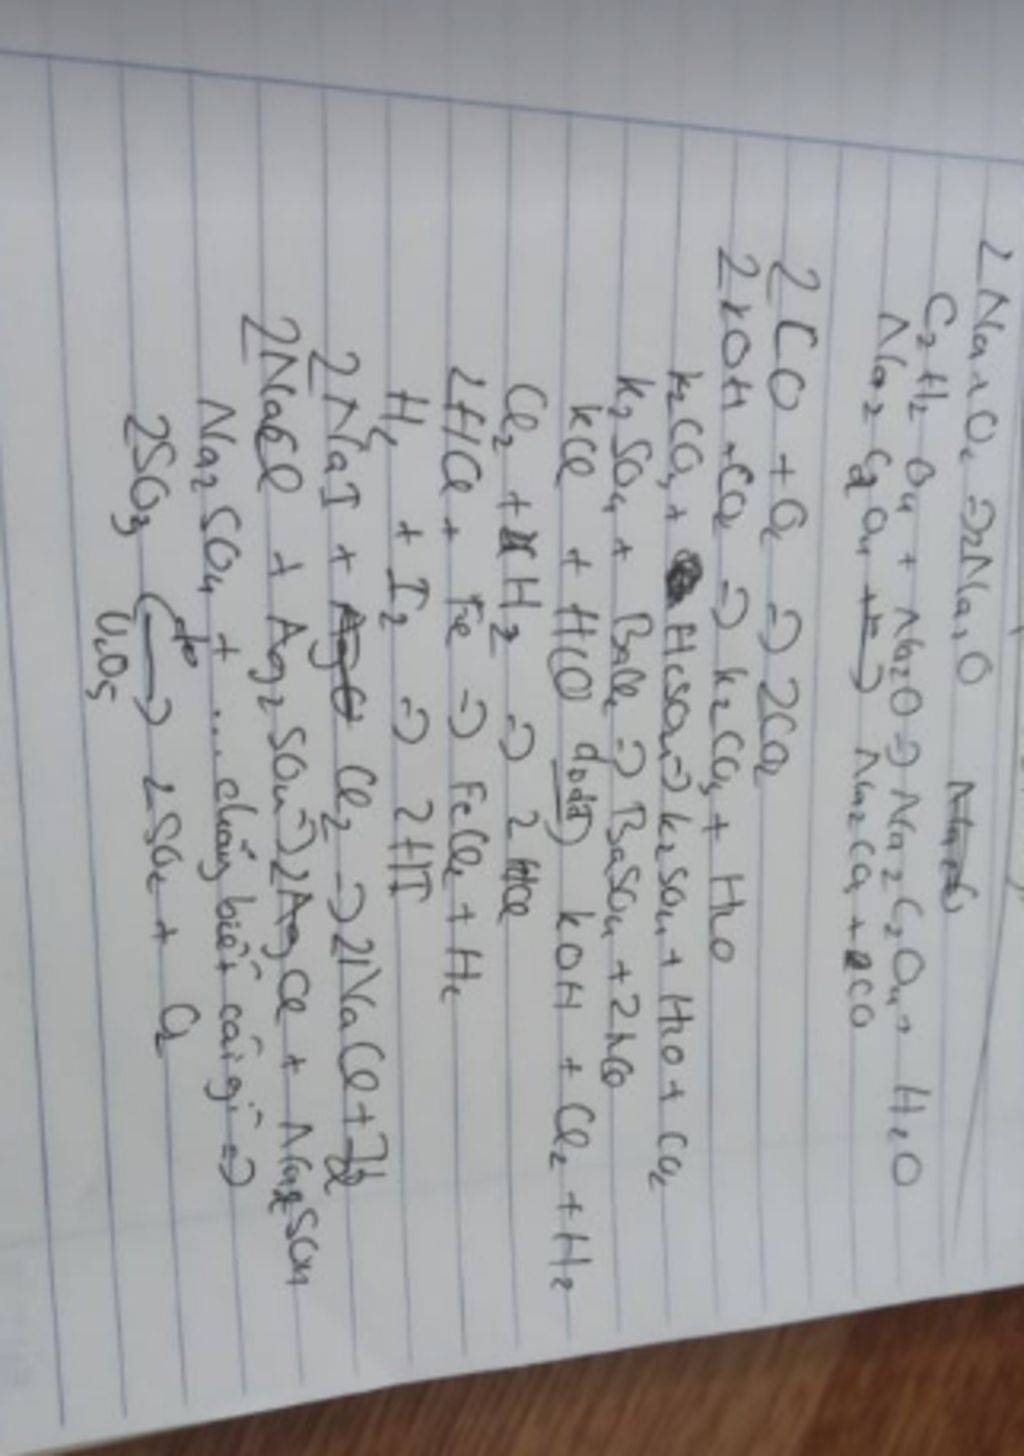 2Na + O2 => 2Na2O
C2H2O4 + Na2O => Na2C2O4 + H2O
Na2C2O4 => Na2CO3 + CO
2CO + O2 => 2CO2
2KOH + CO2 => K2CO3 + H2O
K2CO3 + H2SO4 => K2SO4 + H2O + CO2
K2SO4 + BaCl2 => BaSO4 + 2KCl
KCl + H2O đpdd KOH + Cl2 + H2
Cl2 + H2 => 2HCl
2HCl + Fe => FeCl2 + H2
H2 + I2 => 2HI
2NaI + Cl2 => 2NaCl + I2
2NaCl + Ag2SO4 => 2AgCl + Na2SO4
Na2SO4 + ... chẳng biết cái gì =>
2SO3 to V2O5 → 2SO2 + O2